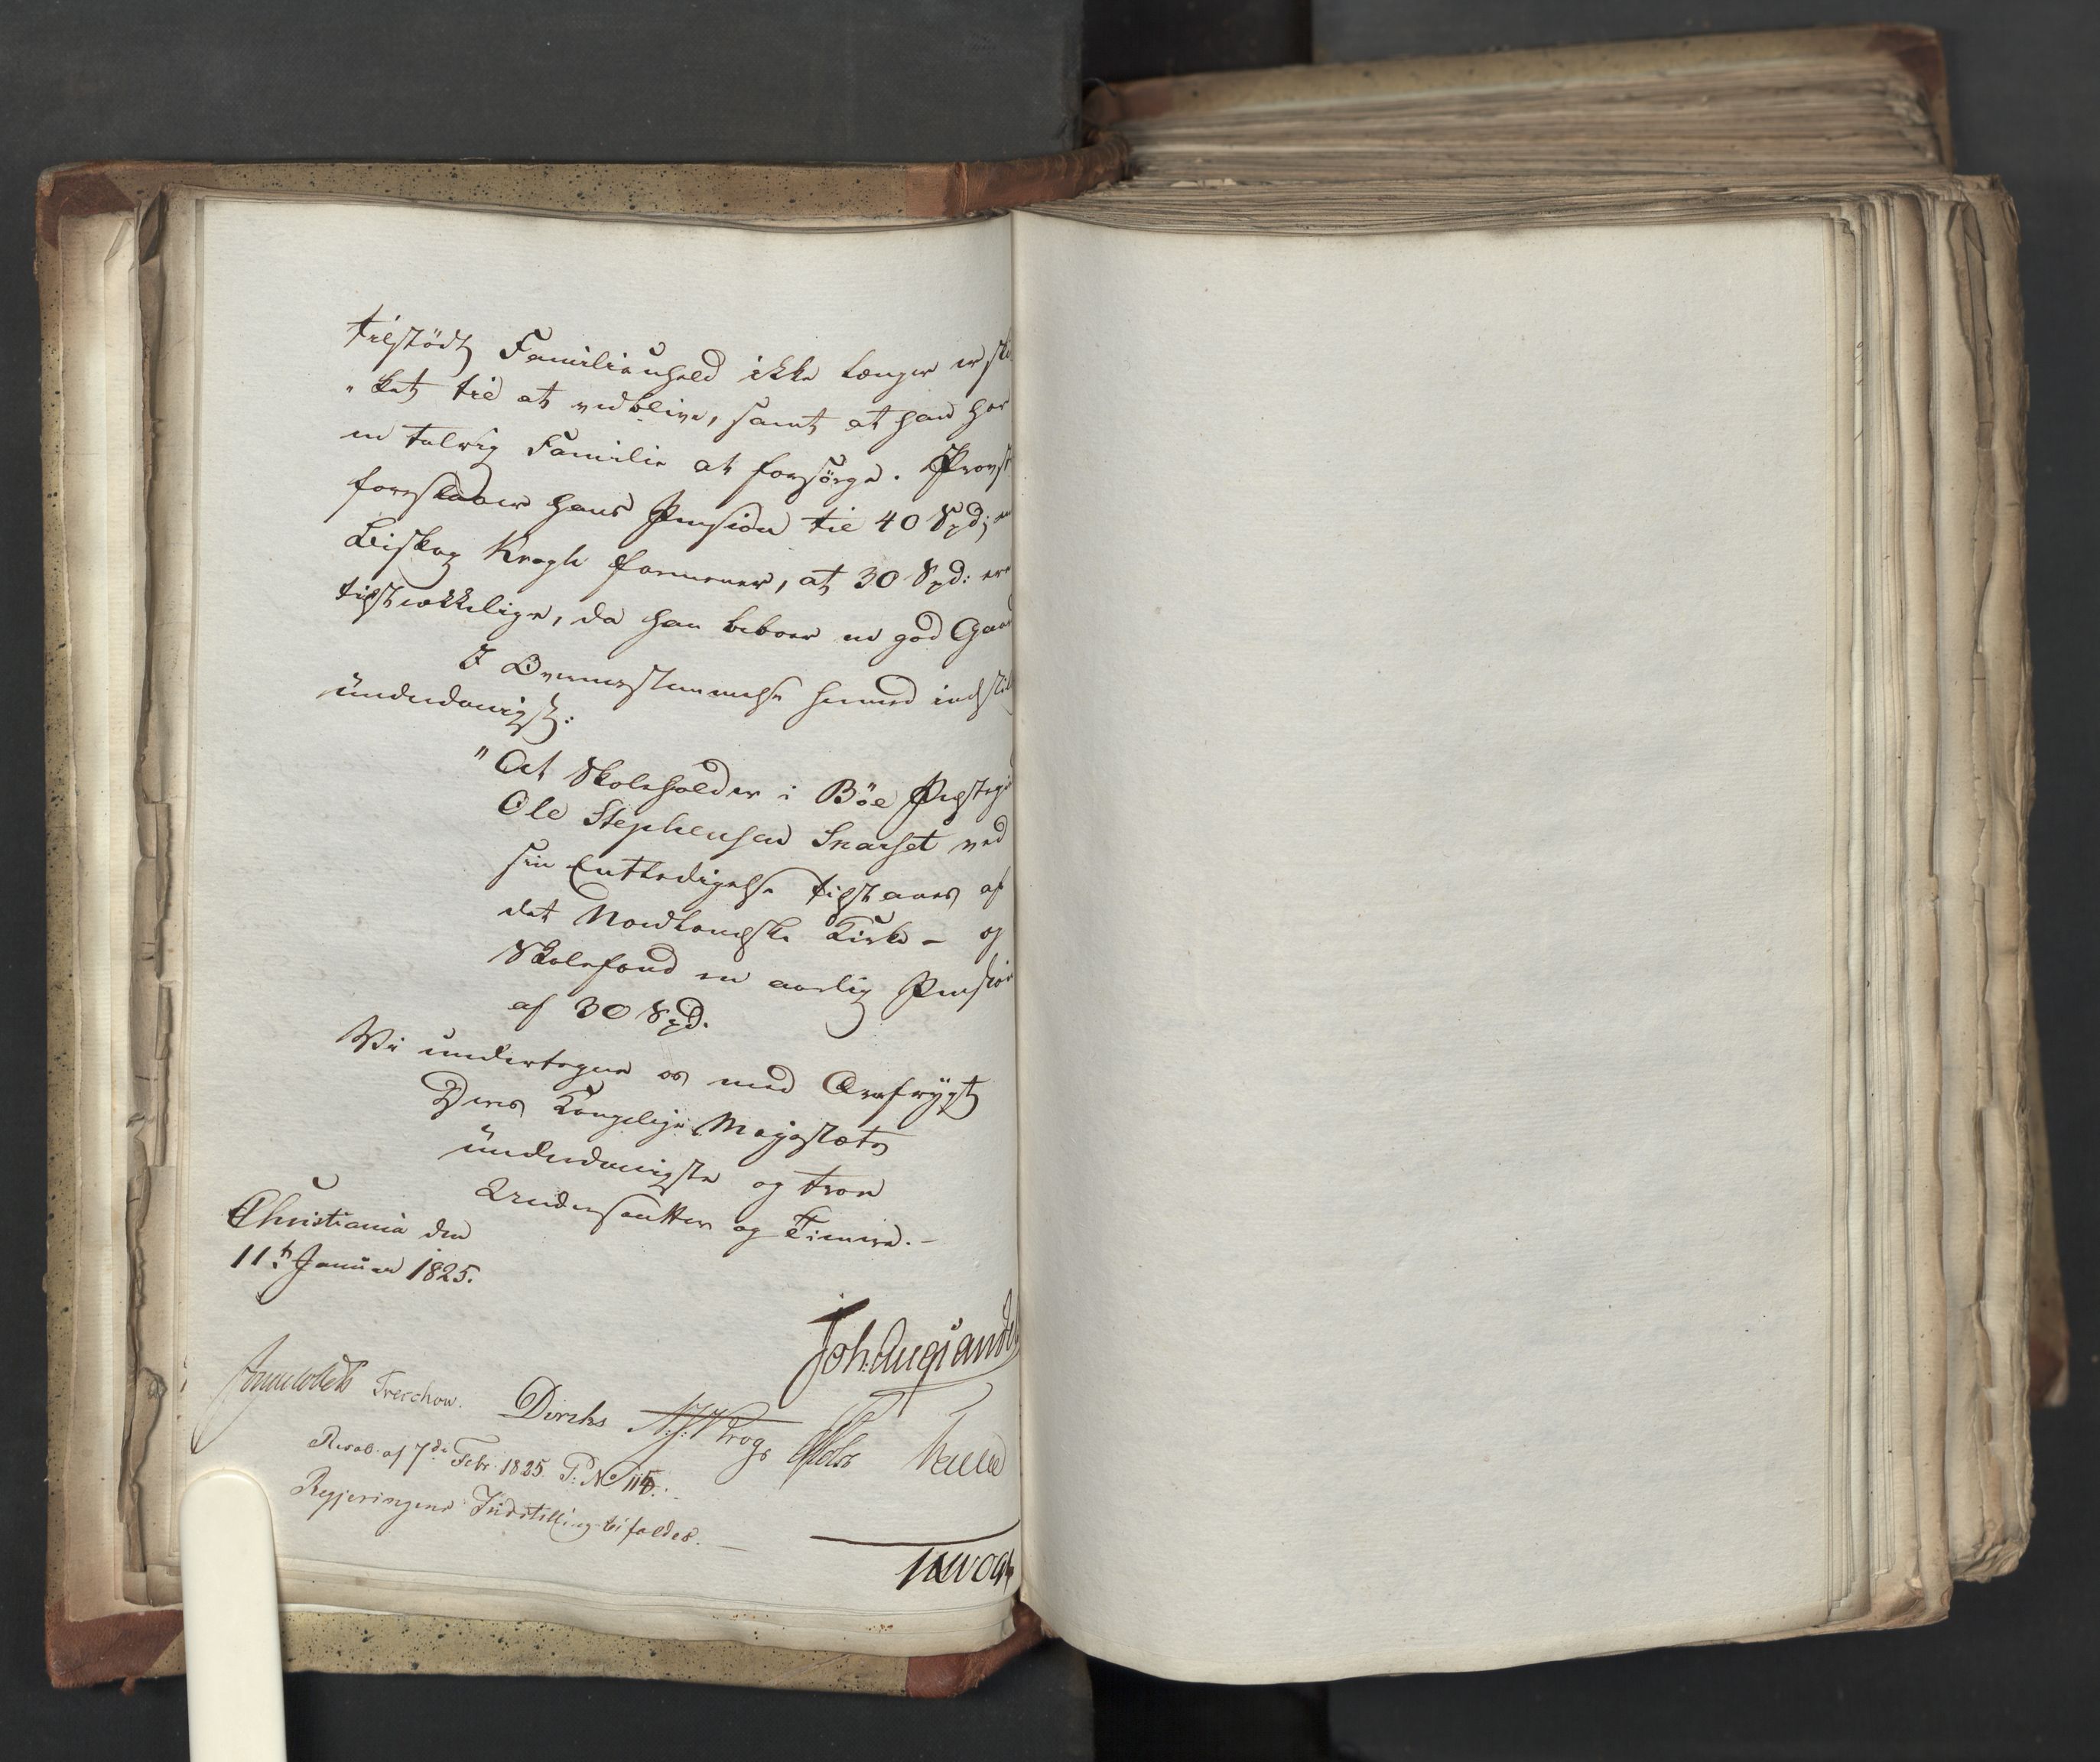 tilstödt Familieuheld ikke længer er ski
„ket til at vedblive, samt at han har
en talrig Familie at forsörge. Provst
foreslaaer hans Pension til 40 Spd; en
Biskop Krogh formener, at 30 Spd: ere
tilstrækkelige, da han beboer en god Gaard
I Overensstemmelse hermed indstill
ünderdanigst:
"At Skoleholder i Böe Præstegi
Ole Stephensen Snarset ved
sin Entledigelse tilstaaes af
det Nordlandske Kirke- og
Skolefond en aarlig Pension
af 30 Spd.
Vi undertegne os med Ærefrygt
Deres Kongelige Majestæts
ünderdanigste og troe
Undersaatter og Tienere.-
Christiania den
11te Januar 1825.
Joh: Aug: Sande
Treschow. Diriks Krog Holst
Resol: af 7de Febr: 1825. P: No 115.
Regjeringens Indstilling bifaldes.